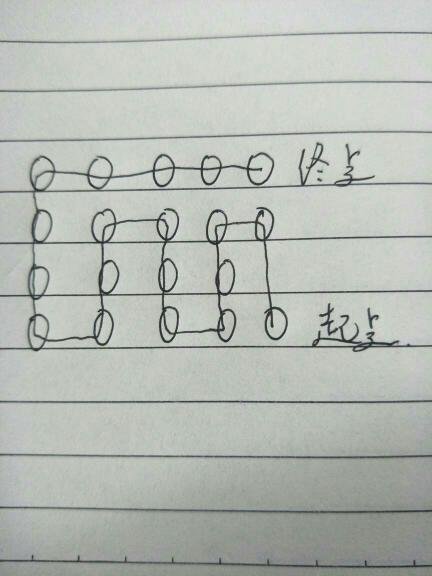 终点
起点